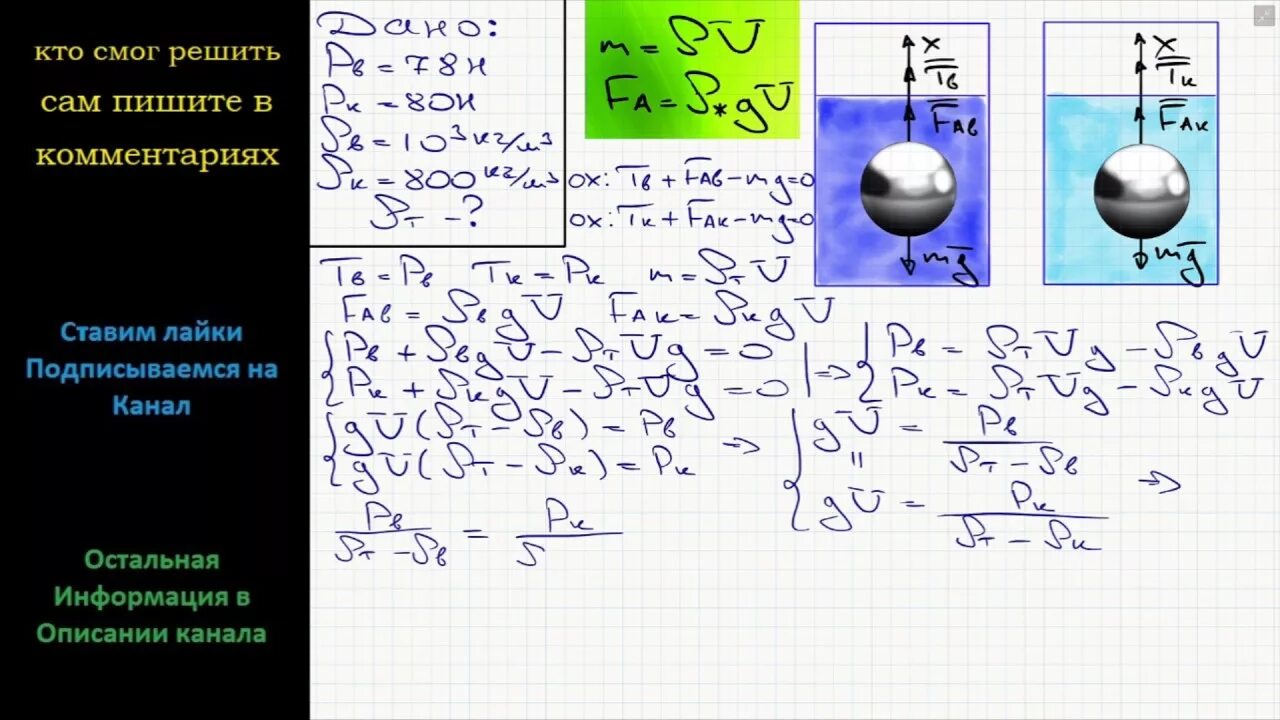 кто смог решить
сам пишите в
комментариях
Ставим лайки
Подписываемся на
Канал
Остальная
Информация в
Описании канала
Дано:
Pв = 78Н
Pк = 80Н
ρв = 10³ кг/м³
ρк = 800 кг/м³
ρт - ?
m = ρV
FA = ρж gV
ox: Tв + FАв - mg = 0
ox: Tк + FАк - mg = 0
X
Tв
FАв
mg
X
Tк
FАк
mg
Tв = Pв Tк = Pк m = ρт V
FАв = ρв gV FАк = ρк gV
{ Pв + ρв gV - ρт Vg = 0
{ Pк + ρк gV - ρт Vg = 0
|=> { Pв = ρт Vg - ρв gV
{ Pк = ρт Vg - ρк gV
{ gV (ρт - ρв) = Pв
{ gV (ρт - ρк) = Pк
=> { gV = Pв / (ρт - ρв)
=
{ gV = Pк / (ρт - ρк)
=>
Pв / (ρт - ρв) = Pк / ρ